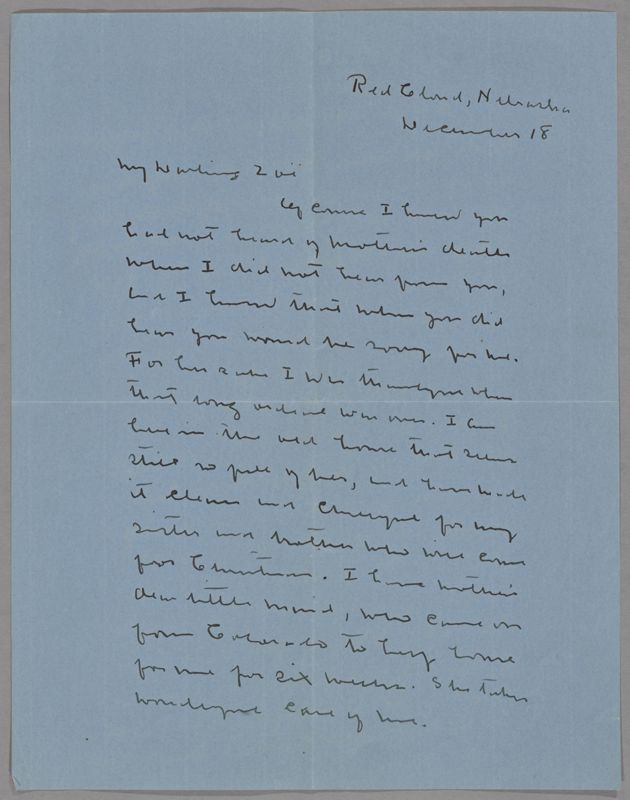 Red Cloud, Nebraska
December 18
My Darling Zoë
Of course I knew you
had not heard of Mother's death
when I did not hear from you,
and I knew that when you did
hear you would be sorry for me.
For her sake I was thankful when
that long ordeal was over. I am
here in the old house that seems
still so full of her, and have made
it clean and cheerful for my
sister and brother who will come
for Christmas. I have mother's
dear little maid, who came on
from Colorado to keep house
for me for six weeks. She takes
wonderful care of me.